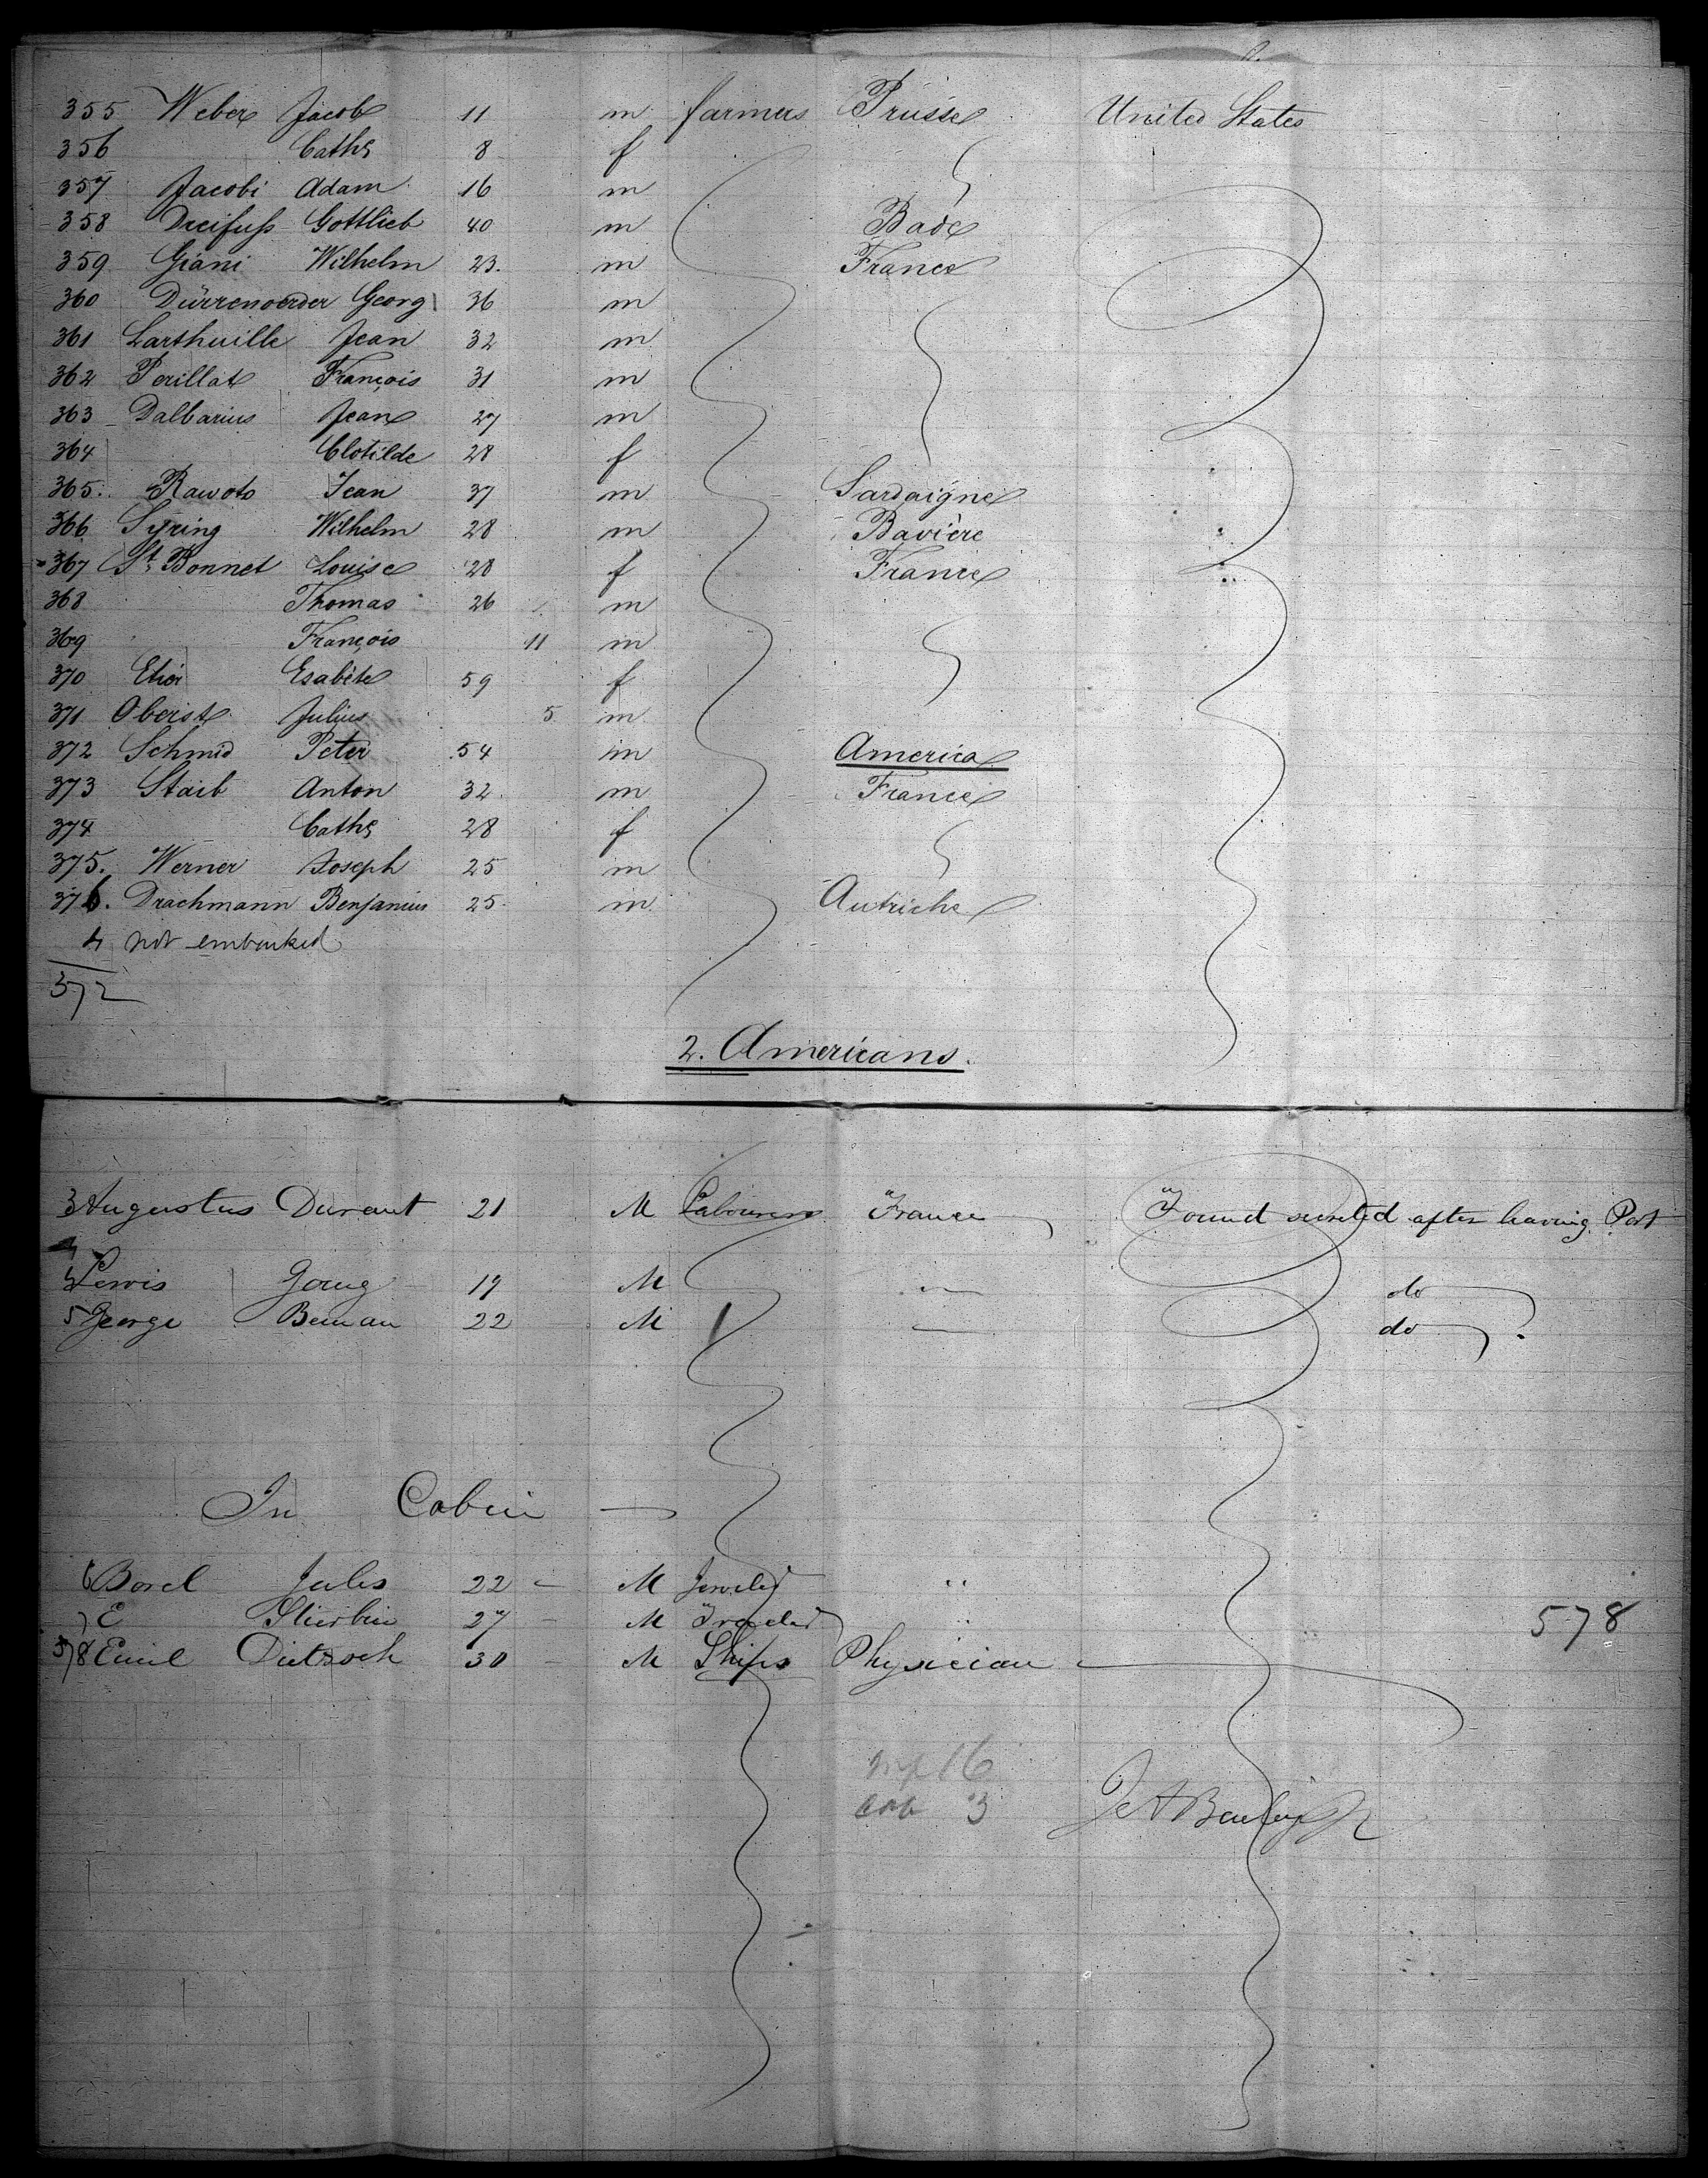 355 Weber Jacob 11 m farmers Prusse United States
356 Cathe 8 f
357 Jacobi Adam 16 m
358 Dreifuss Gottlieb 40 m Bade
359 Giani Wilhelm 23. m France
360 Dürrenoerder Georg 36 m
361 Larthuille Jean 32 m
362 Perillat François 31 m
363 Dalbarius Jean 27 m
364 Clotilde 28 f
365. Rawoto Jean 37 m Sardaigne
366 Syring Wilhelm 28 m Bavière
367 St. Bonnet Louise 28 f France
368 Thomas 26 m
369 François 11 m
370 Esabéte 59 f
371 Oberist Julius 5 m
372 Schmid Peter 54 m America
373 Staib Anton 32 m France
374 Cathe 28 f
375. Werner Joseph 25 m
376. Drachmann Benjamin 25 m Autriche
4 not embarked
372
2. Americans.
3 Augustus Durant 21 M Labourers France Found secreted after leaving Port
4 Lewis 19 M do
5 George Beman 22 M do
In Cabin
6 Borel Jules 22 M Jeweler "
7 E 27 M "
578
578 Emil Dietzsch 30 M Ships Physician
16
cab 3